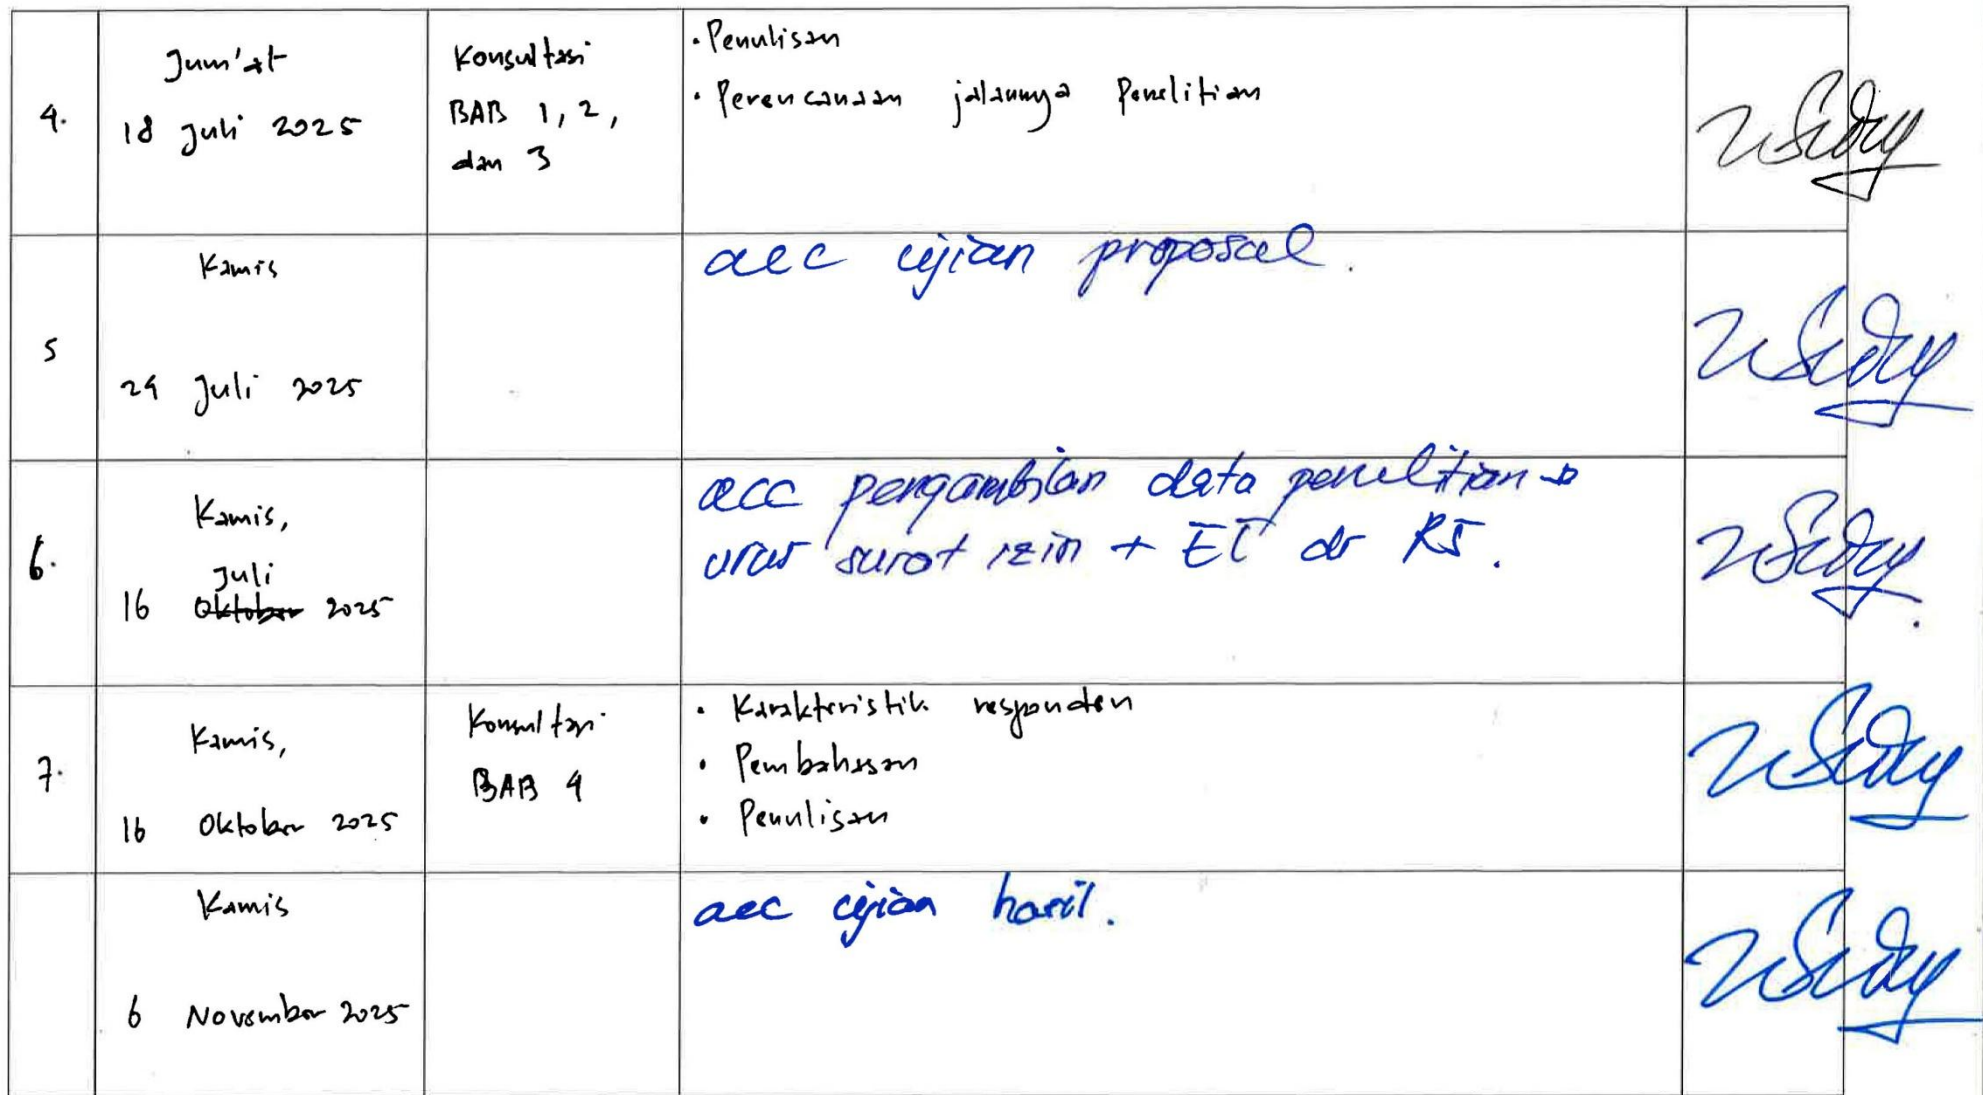 4.
Jum'at
18 Juli 2025
Konsultasi
BAB 1, 2,
dan 3
• Penulisan
• Perencanaan jalannya Penelitian
5
Kamis
24 Juli 2025
acc ujian proposal.
6.
Kamis,
Juli
16 Oktober 2025
acc pengambilan data penelitian →
urus surat izin + EC dr RS.
7.
Kamis,
16 Oktober 2025
Konsultasi
BAB 4
• Karakteristik responden
• Pembahasan
• Penulisan
Kamis
6 November 2025
acc ujian hasil.